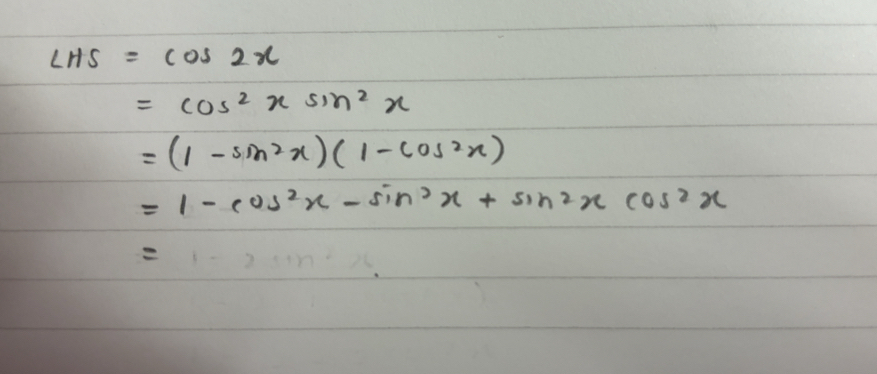 LHS = cos 2x
= cos² x sin² x
= (1 - sin²x)(1 - cos²x)
= 1 - cos²x - sin²x + sin²x cos²x
=